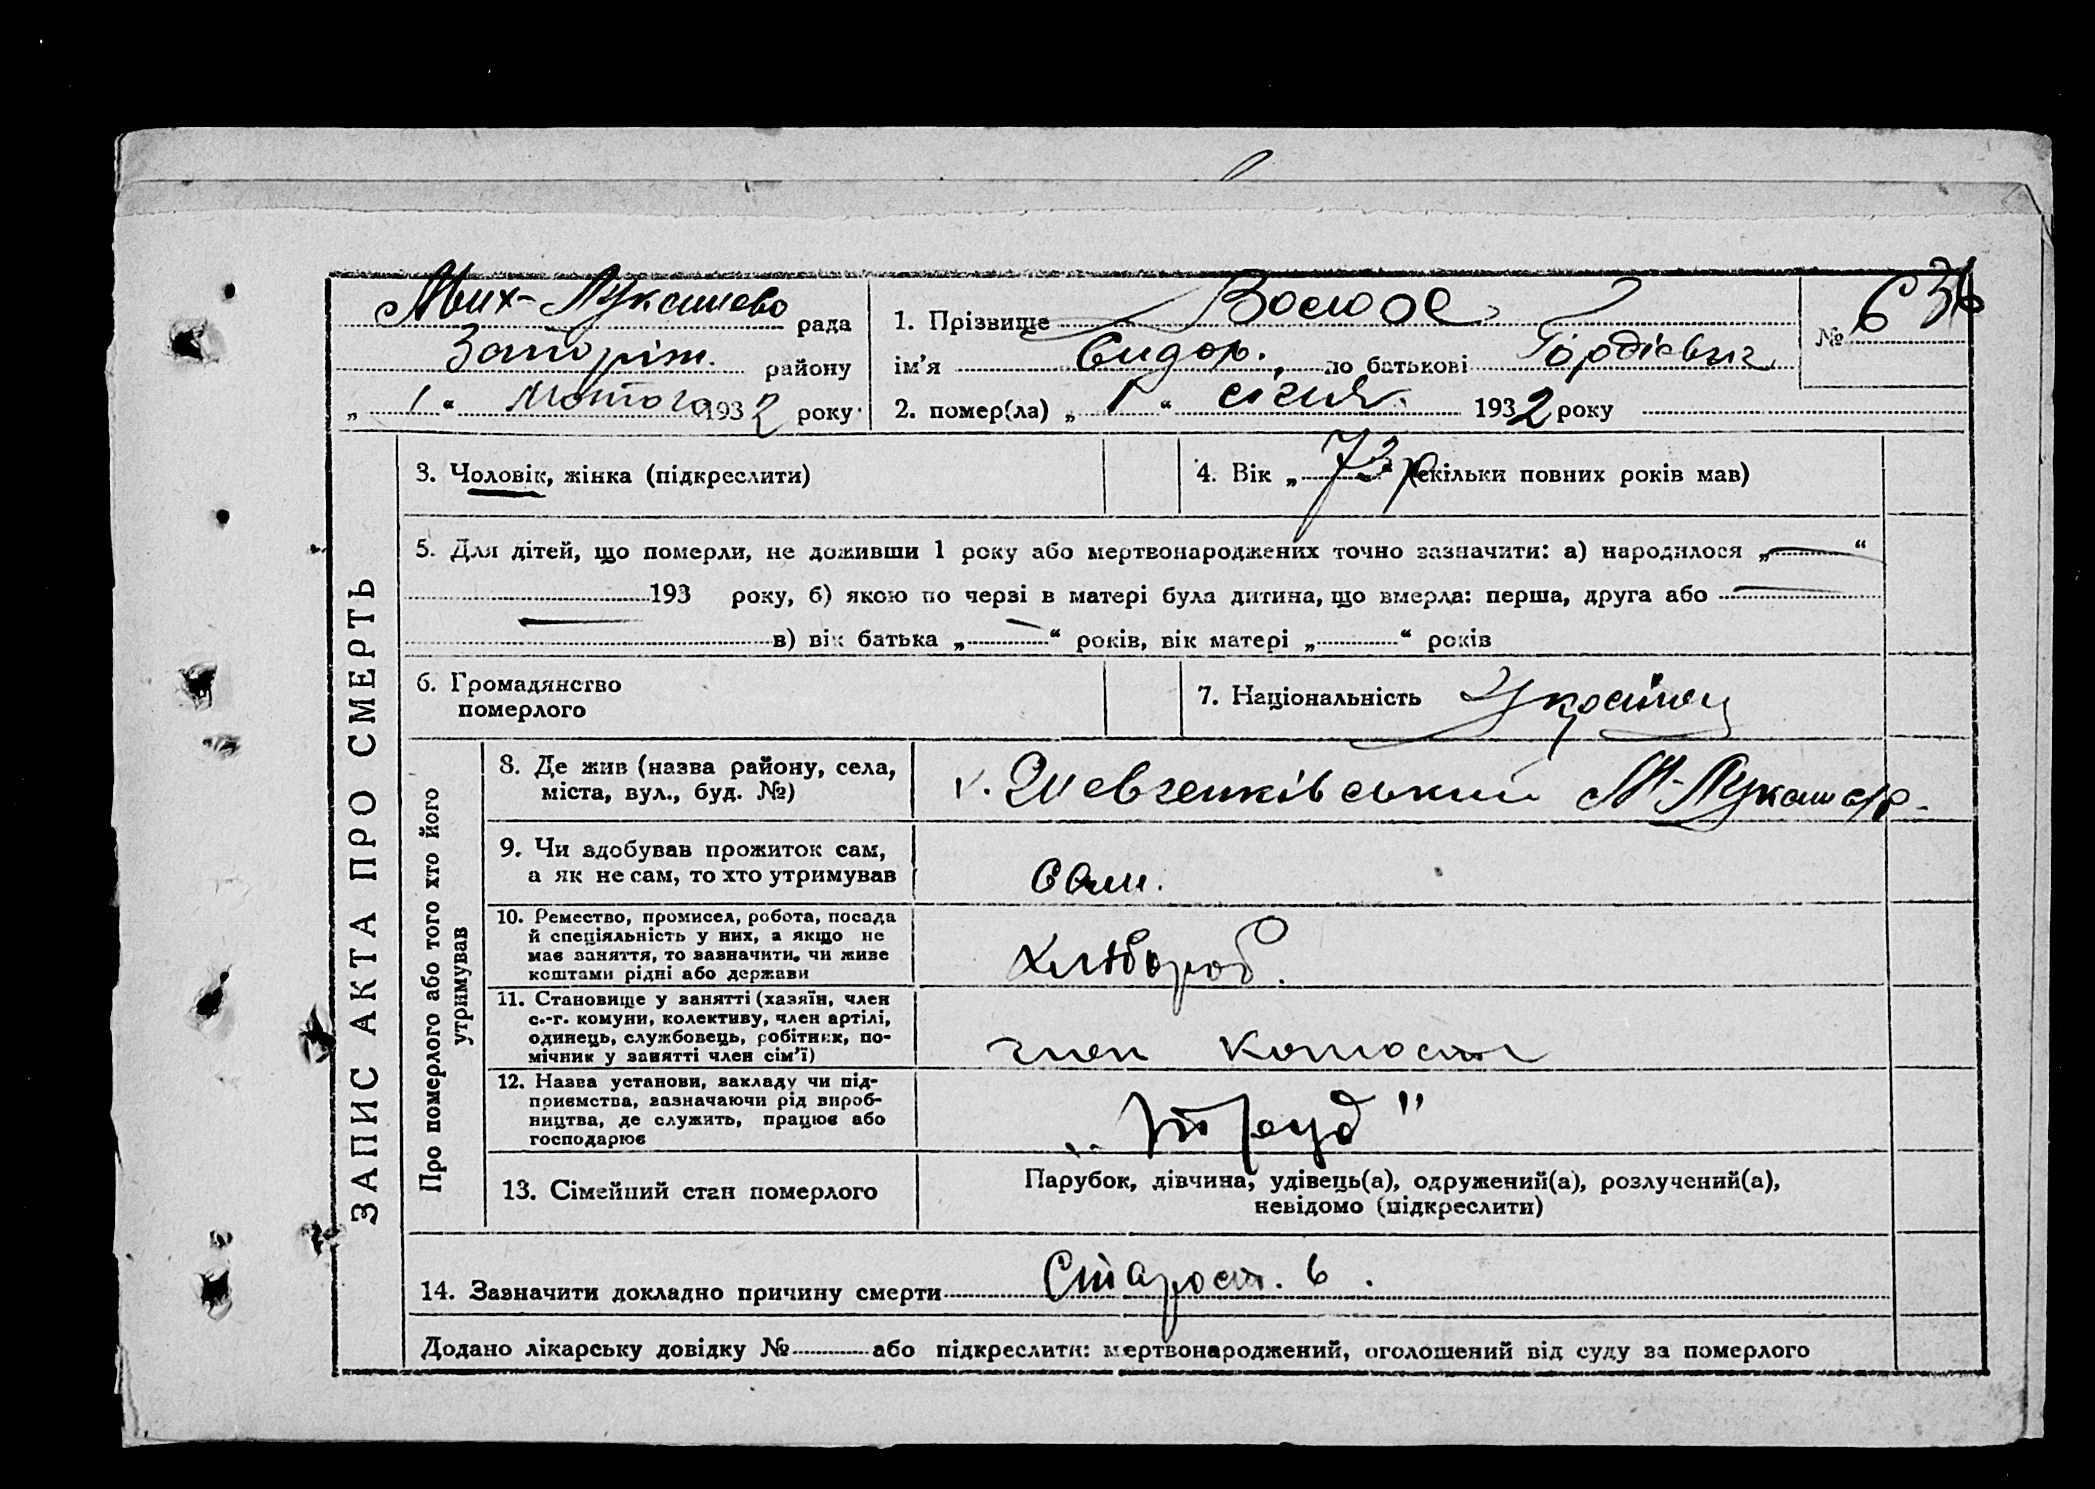 ЗАПИС АКТА ПРО СМЕРТЬ
Мих-Лукашево рада
Запоріж. району
„ 1 “ Лютого 1932 року
1. Прізвище
ім'я Сидор. по батькові Гордієвич
2. помер(ла) „ 1 “ січня. 1932 року
№ 636
3. Чоловік, жінка (підкреслити)
4. Вік „ 73 р (скільки повних років мав)
5. Для дітей, що померли, не доживши 1 року або мертвонароджених точно зазначити: а) народилося „ “
193 року, б) якою по черзі в матері була дитина, що вмерла: перша, друга або
в) вік батька „ “ років, вік матері „ “ років
6. Громадянство
померлого
7. Національність Українец
Про померлого або того хто його
утримував
8. Де жив (назва району, села,
міста, вул., буд. №)
Шевченківський М-Лукашер.
9. Чи здобував прожиток сам,
а як не сам, то хто утримував
сам.
10. Ремество, промисел, робота, посада
й спеціяльність у них, а якщо не
має заняття, то зазначити, чи живе
коштами рідні або держави
хлібороб.
11. Становище у занятті (хазяїн, член
с.-г. комуни, колективу, член артілі,
одинець, службовець, робітник, по-
мічник у занятті член сім'ї)
член
12. Назва установи, закладу чи під-
приємства, зазначаючи рід вироб-
ництва, де служить, працює або
господарює
„Труд"
13. Сімейний стан померлого
Парубок, дівчина, удівець(а), одружений(а), розлучений(а),
невідомо (підкреслити)
14. Зазначити докладно причину смерти Старост. в .
Додано лікарську довідку № або підкреслити: мертвонароджений, оголошений від суду за померлого